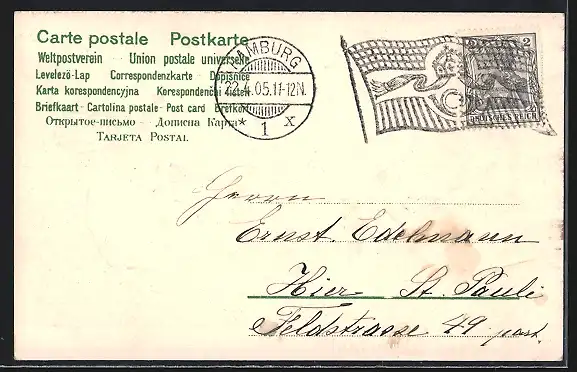 Carte postale Postkarte
Weltpostverein - Union postale universelle
Levelező-Lap Correspondenzkarte Dopisnice
Karta korespondencyjna Korespondenční lístek
Briefkaart - Cartolina postale - Post card Brefkort
Открытое-письмо - Дописна Карта
TARJETA POSTAL
HAMBURG
22.4.05.11-12N.
* 1 x
2 2
DEUTSCHES REICH
Herrn
Ernst Edelmann
Hier St. Pauli
Feldstrasse 49 part.